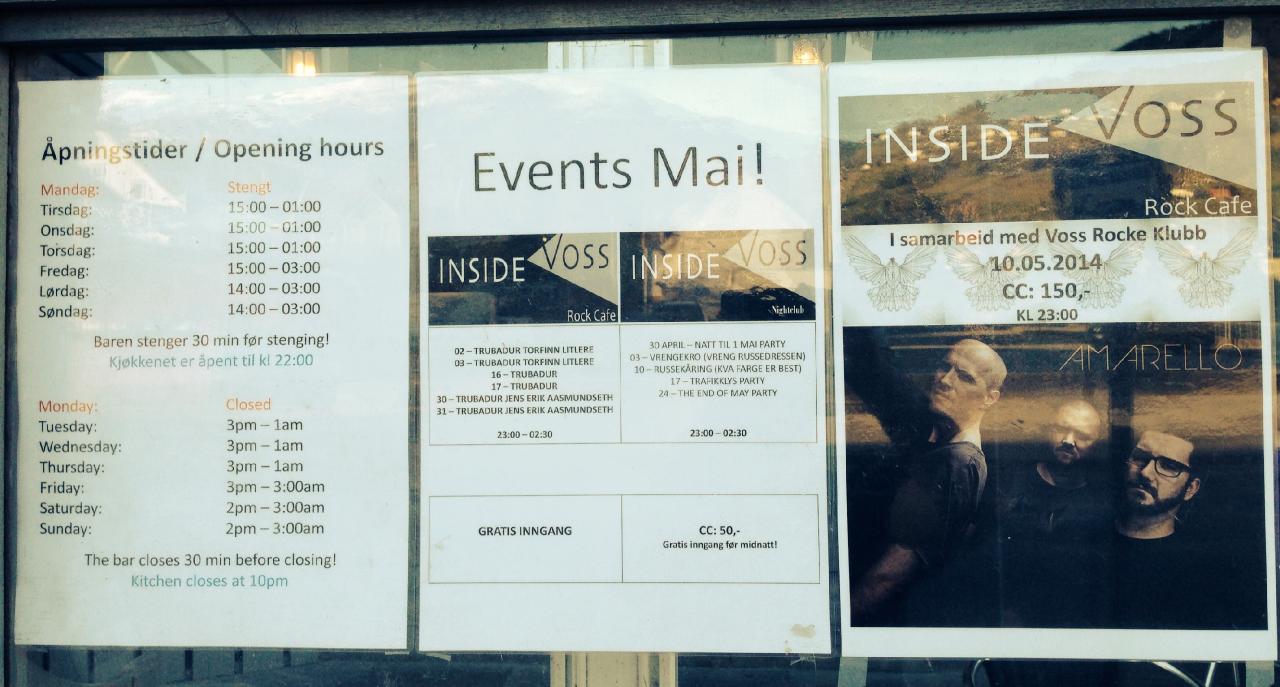 Åpningstider / Opening hours
Mandag: Stengt
Tirsdag: 15:00 – 01:00
Onsdag: 15:00 – 01:00
Torsdag: 15:00 – 01:00
Fredag: 15:00 – 03:00
Lørdag: 14:00 – 03:00
Søndag: 14:00 – 03:00
Baren stenger 30 min før stenging!
Kjøkkenet er åpent til kl 22:00
Monday: Closed
Tuesday: 3pm – 1am
Wednesday: 3pm – 1am
Thursday: 3pm – 1am
Friday: 3pm – 3:00am
Saturday: 2pm – 3:00am
Sunday: 2pm – 3:00am
The bar closes 30 min before closing!
Kitchen closes at 10pm
Events Mai!
INSIDE VOSS
Rock Cafe
02 – TRUBADUR TORFINN LITLERE
03 – TRUBADUR TORFINN LITLERE
16 – TRUBADUR
17 – TRUBADUR
30 – TRUBADUR JENS ERIK AASMUNDSETH
31 – TRUBADUR JENS ERIK AASMUNDSETH
23:00 – 02:30
GRATIS INNGANG
INSIDE VOSS
Nightclub
30 APRIL – NATT TIL 1 MAI PARTY
03 – VRENGEKRO (VRENG RUSSEDRESSEN)
10 – RUSSEKÅRING (KVA FARGE ER BEST)
17 – TRAFIKKLYS PARTY
24 – THE END OF MAY PARTY
23:00 – 02:30
CC: 50,-
Gratis inngang før midnatt!
INSIDE VOSS
Rock Cafe
I samarbeid med Voss Rocke Klubb
10.05.2014
CC: 150,-
KL 23:00
AMARELLO